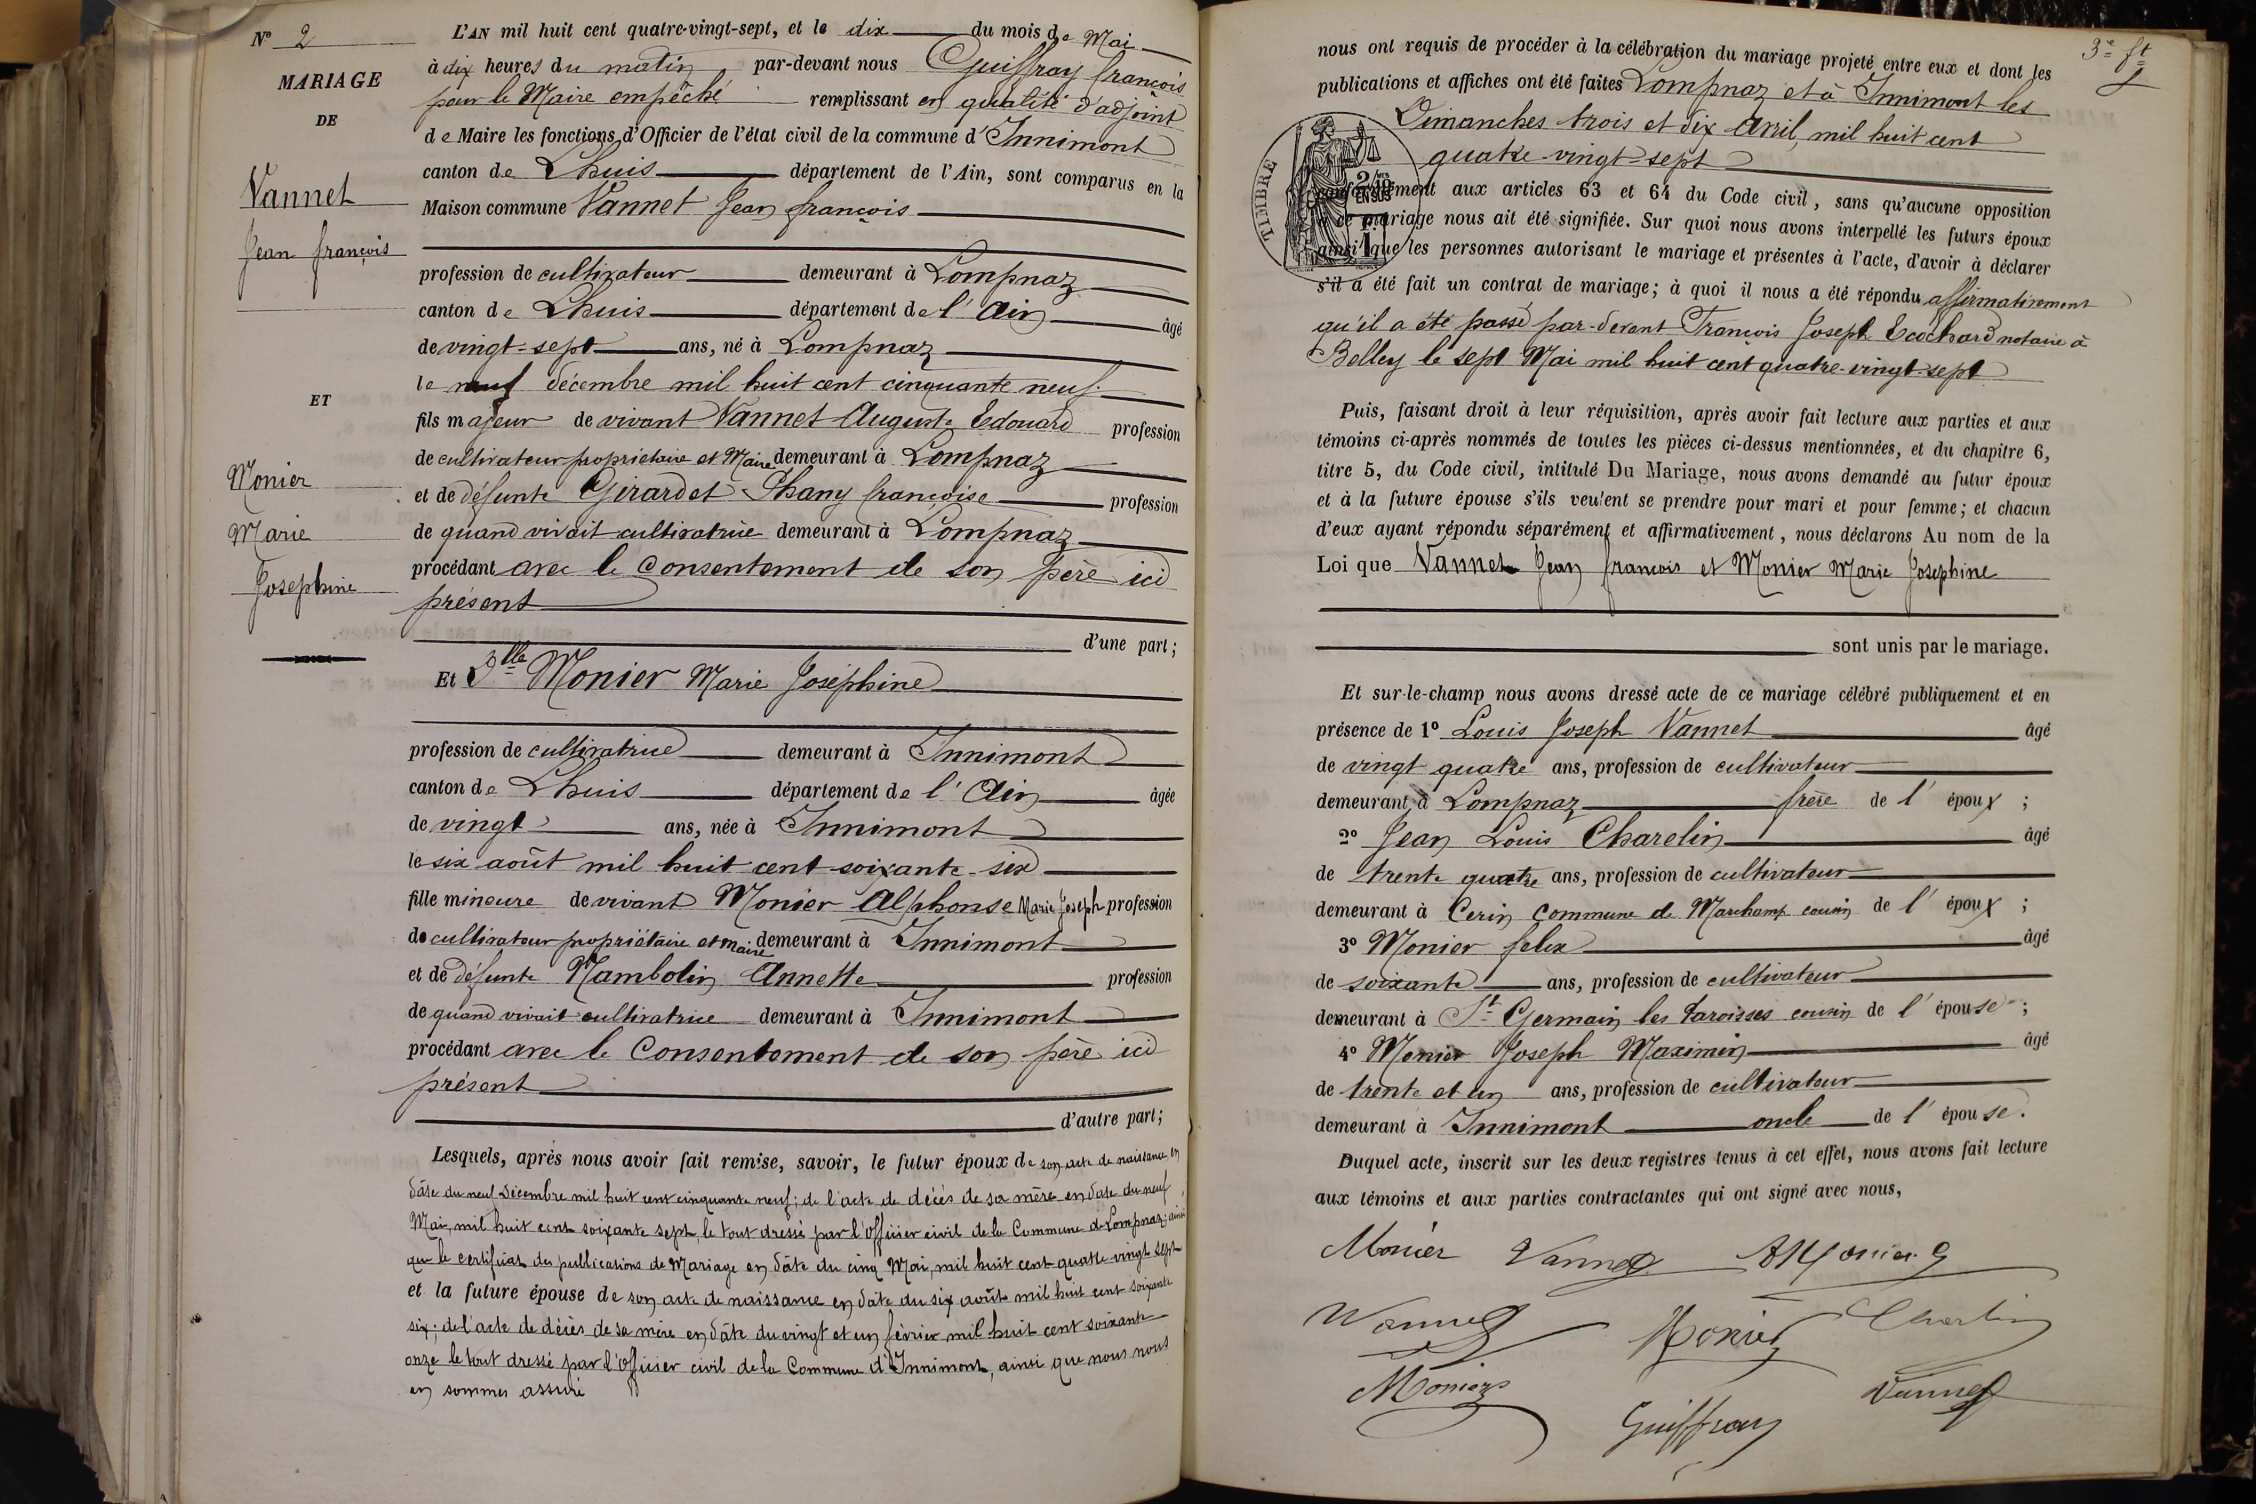 N° 2
MARIAGE
DE
Vannet
Jean françois
ET
Monier
Marie
Josephine
L'AN mil huit cent quatre-vingt-sept, et le dix du mois de Mai
à dix heures du matin par-devant nous Guiffray françois
pour le Maire empêché remplissant en qualité d'adjoint
de Maire les fonctions d'Officier de l'état civil de la commune d'Innimont
canton de Lhuis département de l'Ain, sont comparus en la
Maison commune Vannet Jean françois
profession de cultivateur demeurant à Lompnaz
canton de Lhuis département de l'Ain âgé
de vingt-sept ans, né à Lompnaz
le neuf décembre mil huit cent cinquante neuf
fils majeur de vivant Vannet Auguste Edouard profession
de cultivateur propriétaire et Maire demeurant à Lompnaz
et de défunte Girardet Phany françoise profession
de quand vivait cultivatrice demeurant à Lompnaz
procédant avec le Consentement de son père ici
présent
d'une part;
Et Dlle Monier Marie Joséphine
profession de cultivatrice demeurant à Innimont
canton de Lhuis département de l'Ain âgée
de vingt ans, née à Innimont
le six août mil huit cent soixante-six
fille mineure de vivant Monier Alphonse Marie Joseph profession
de cultivateur propriétaire et maire demeurant à Innimont
et de défunte Mambolin Annette profession
de quand vivait cultivatrice demeurant à Innimont
procédant avec le Consentement de son père ici
présent
d'autre part;
Lesquels, après nous avoir fait remise, savoir, le futur époux de son acte de naissance en
dâte du neuf Décembre mil huit cent cinquante neuf; de l'acte de décès de sa mère en date du neuf
Mai, mil huit cent soixante sept, le tout dressé par l'Officier civil de la Commune de Lompnaz; ainsi
que le certificat des publications de Mariage en dâte du cinq Mai, mil huit cent quatre vingt sept
et la future épouse de son acte de naissance en dâte du six août mil huit cent soixante
six; de l'acte de décès de sa mère en dâte du vingt et un février mil huit cent soixante
onze le tout dressé par l'Officier civil de la Commune d'Innimont, ainsi que nous nous
en sommes assuré
3e ft
nous ont requis de procéder à la célébration du mariage projeté entre eux et dont les
publications et affiches ont été faites Lompnaz et à Innimont les
Dimanches trois et dix Avril, mil huit cent
quatre-vingt-sept
TIMBRE
2/10 EN SUS
conformément aux articles 63 et 64 du Code civil, sans qu'aucune opposition
à ce mariage nous ait été signifiée. Sur quoi nous avons interpellé les futurs époux
ainsi que les personnes autorisant le mariage et présentes à l'acte, d'avoir à déclarer
s'il a été fait un contrat de mariage; à quoi il nous a été répondu affirmativement
qu'il a été passé par-devant François Joseph Ecochard notaire à
Belley le sept Mai mil huit cent quatre-vingt-sept
Puis, faisant droit à leur réquisition, après avoir fait lecture aux parties et aux
témoins ci-après nommés de toutes les pièces ci-dessus mentionnées, et du chapitre 6,
titre 5, du Code civil, intitulé Du Mariage, nous avons demandé au futur époux
et à la future épouse s'ils veulent se prendre pour mari et pour femme; et chacun
d'eux ayant répondu séparément et affirmativement, nous déclarons Au nom de la
Loi que Vannet Jean françois et Monier Marie Josephine
sont unis par le mariage.
Et sur-le-champ nous avons dressé acte de ce mariage célébré publiquement et en
présence de 1° Louis Joseph Vannet âgé
de vingt quatre ans, profession de cultivateur
demeurant à Lompnaz frère de l'époux;
2° Jean Louis Charelin âgé
de trente quatre ans, profession de cultivateur
demeurant à Cerin Commune de Marchamp cousin de l'époux;
3° Monier felix âgé
de soixante ans, profession de cultivateur
demeurant à St Germain les Paroisses cousin de l'épouse;
4° Monier Joseph Maximin âgé
de trente et un ans, profession de cultivateur
demeurant à Innimont oncle de l'épouse.
Duquel acte, inscrit sur les deux registres tenus à cet effet, nous avons fait lecture
aux témoins et aux parties contractantes qui ont signé avec nous,
Monier Vannet A Monier
Vannet Monier Charlin
Monier Vannet
Guiffray